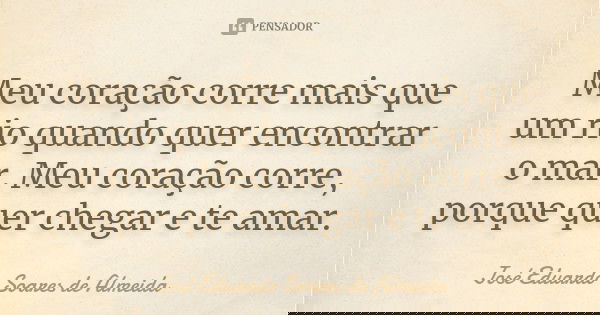 PENSADOR
Meu coração corre mais que
um rio quando quer encontrar
o mar. Meu coração corre,
porque quer chegar e te amar.
José Eduardo
Soares de Almeida